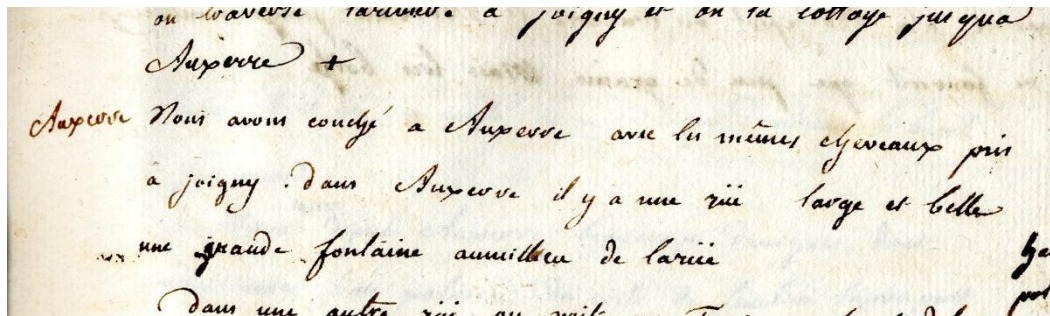 on traverse lariviere a joigny et on la cottoye jusqua
Auxerre +
Auxerre Nous avons couché a Auxerre avec les mêmes chevaux pris
à joigny. dans Auxerre il y a une rüe large et belle
une grande fontaine aumillieu de larüe
dans une autre rüe on voit